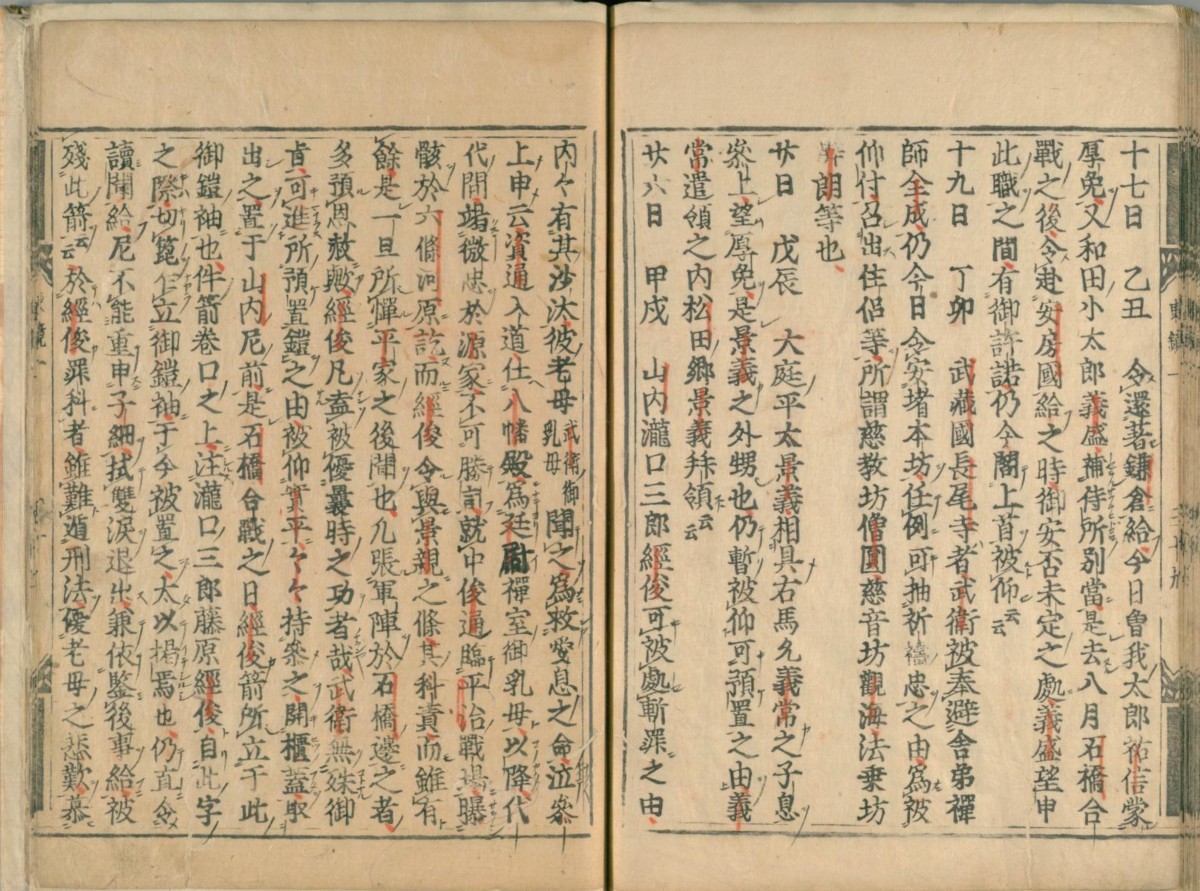 十七日　乙丑　令還著鎌倉給今日曽我太郎祐信蒙
厚免又和田小太郎義盛補侍所別當是去八月石橋合
戰之後令赴安房國給之時御安否未定之處義盛望申
此職之間有御許諾仍今閣上首被仰云云
十九日　丁卯　武藏國長尾寺者武衛被奉避舍弟禪
師全成仍今日令安堵本坊任例可抽祈禱忠之由為被
仰付召出住侶等所謂慈教坊僧圓慈音坊觀海法乗坊
朗等也
廿日　戊辰　大庭平太景義相具右馬允義常之子息
参上望厚免是景義之外甥也仍暫被仰可預置之由義
常遺領之内松田郷景義拜領云云
廿六日　甲戌　山内瀧口三郎經俊可被處斬罪之由
内々有其沙汰彼老母武衛御乳母聞之為救愛息之命泣參
上申云資通入道仕八幡殿為廷尉禪室御乳母以降代
代間竭微忠於源家不可勝計就中俊通臨平治戰場曝
骸於六條河原訖而經俊令與景親之條其科責而雖有
餘是一旦所憚平家之後聞也凡張軍陣於石橋邊之者
多預恩赦歟經俊凡盍被優曩時之功者哉武衛無殊御
旨可進所預置鎧之由被仰實平々々持參之開櫃蓋取
出之置于山内尼前是石橋合戰之日經俊箭所立于此
御鎧袖也件箭巻口之上注瀧口三郎藤原經俊自此字
之際切箆乍立御鎧袖于今被置之太以掲焉也仍直令
讀聞給尼不能重申子細拭雙涙退出兼依鑒後事給被
殘此箭云云於經俊罪科者雖難遁刑法優老母之悲歎慕